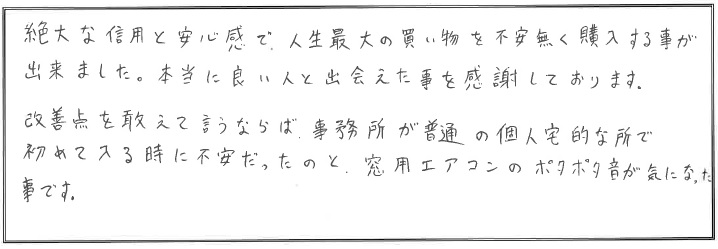 絶大な信用と安心感で、人生最大の買い物を不安無く購入する事が
出来ました。本当に良い人と出会えた事を感謝しております。
改善点を敢えて言うならば、事務所が普通の個人宅的な所で
初めて入る時に不安だったのと、窓用エアコンのポタポタ音が気になった
事です。